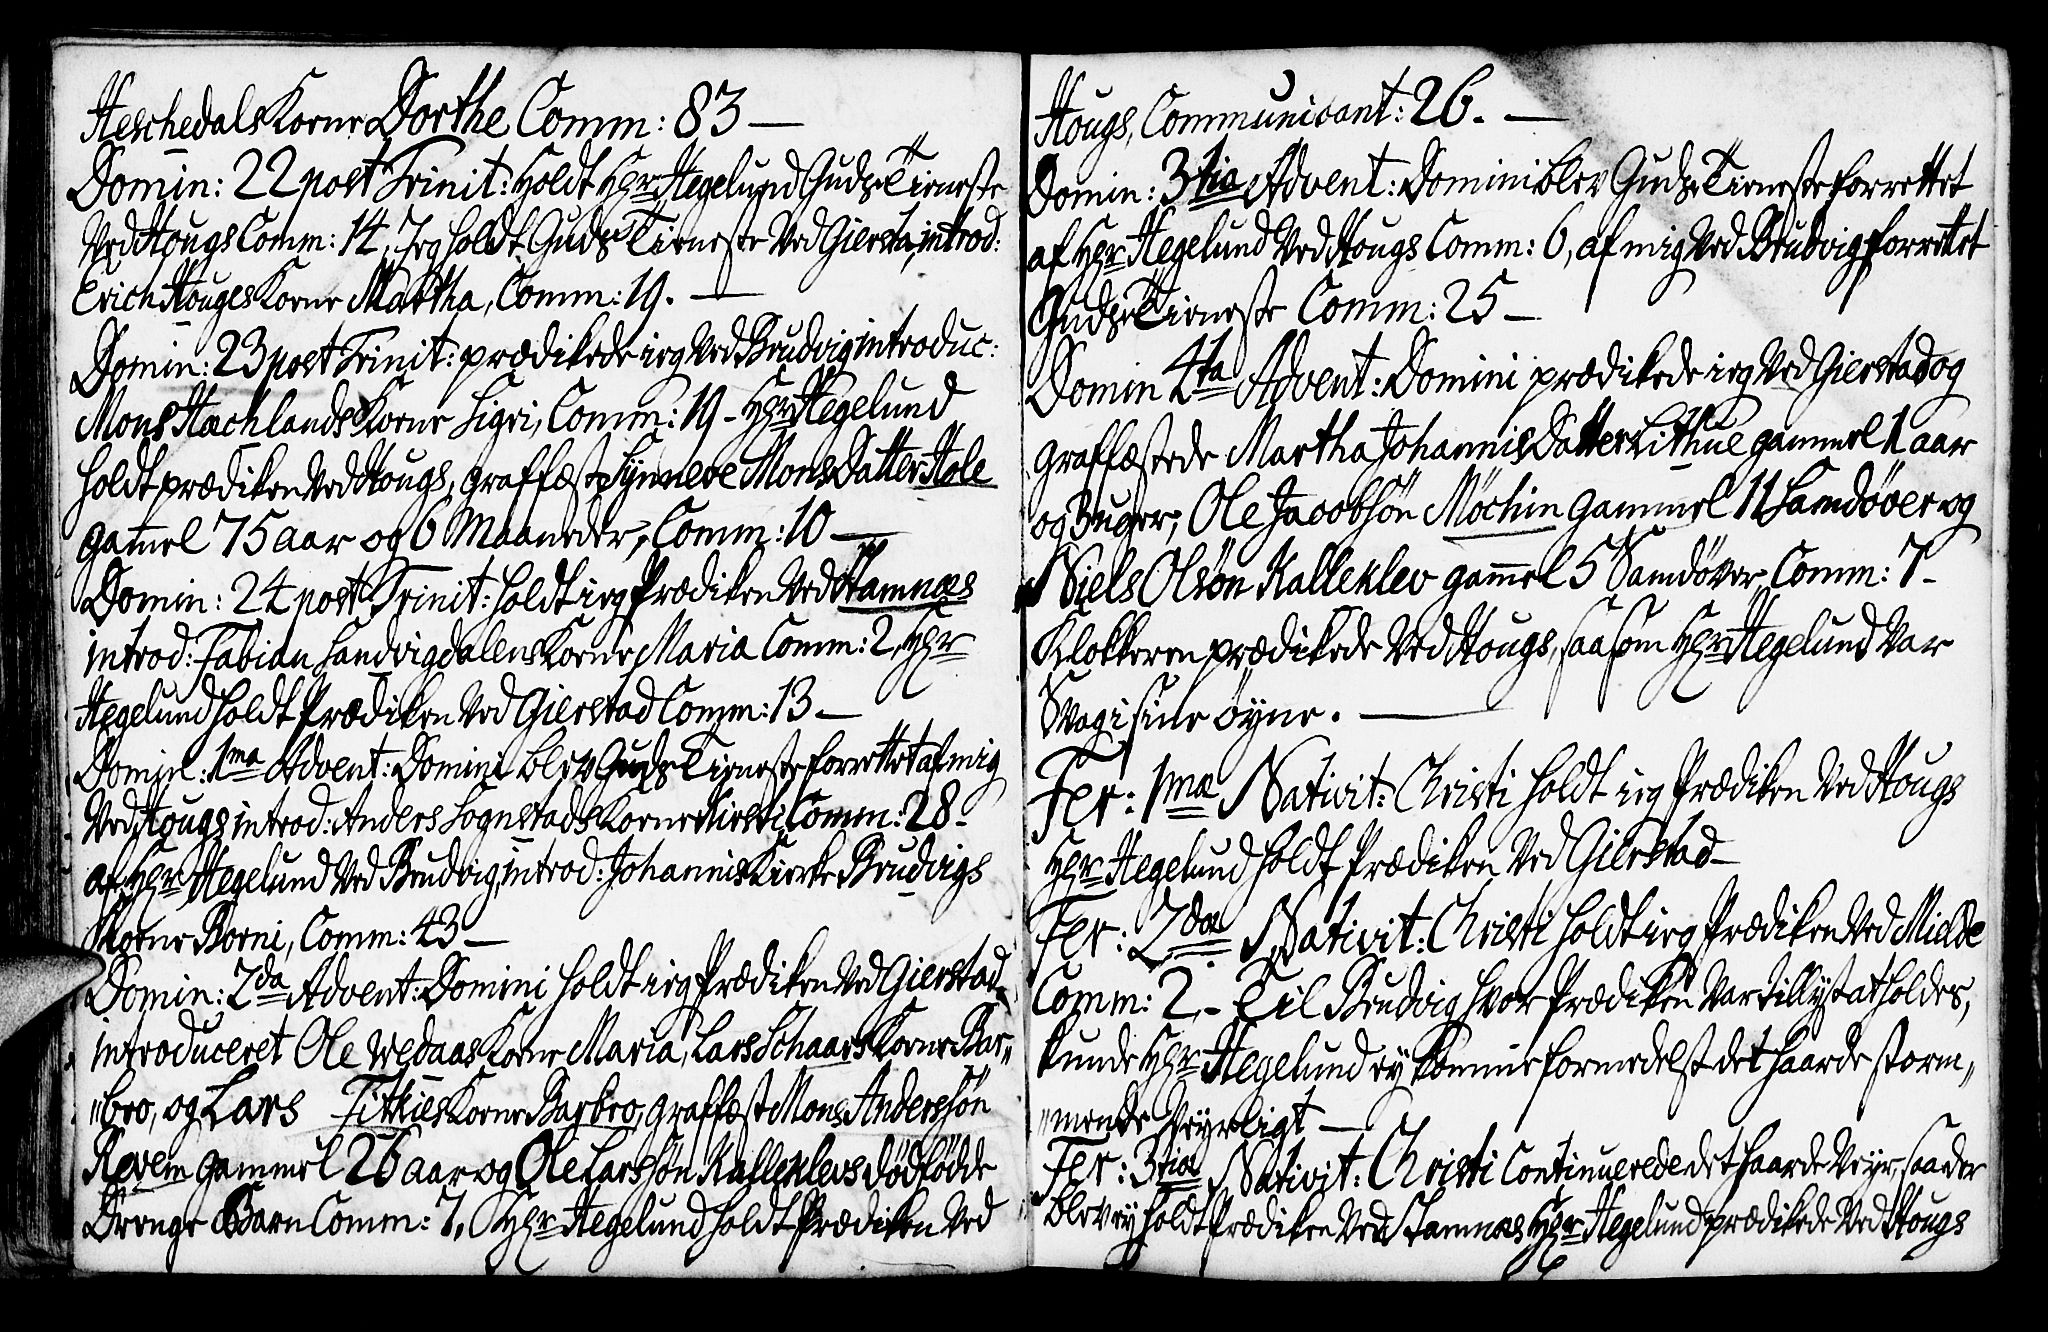 Heschedals Kone Dorthe Comm: 83 —
Domin: 22 post Trinit: holdt Hr Hegelund Guds Tieneste
Ved Hougs Comm: 14, Jeg holdt Guds Tieneste Ved Giersta, introd:
Erich Houges Kone Martha, Comm: 19. —
Domin: 23 post Trinit: prædikede ieg Ved Brudvig introduc:
Mons Hæchlands Kone Sigri, Comm: 19 – Hr Hegelund
holdt prædiken Ved Hougs, graffæste Synneve Mons Datter Hole
gamel 75 aar og 6 Maaneder, Comm: 10 —
Domin: 24 post Trinit: holdt ieg Prædiken Ved Stamnæs
introd: Fabian Sandvigdalens Kone Maria Comm: 2, Hr
Hegelund holdt Prædiken Ved Gierstad Comm: 13 —
Domin: 1ma Advent: Domini blev Guds Tieneste forrettet af mig
Ved Hougs introd: Anders Sognstads Kone Kirsti Comm: 28 –
af Hr Hegelund Ved Brudvig, introd: Johannis Kierke Brudvigs
Kone Borni, Comm: 43 —
Domin: 2da Advent: Domini holdt ieg Prædiken Ved Gierstad,
introduceret Ole Wedaas Kone Maria, Lars Schaars Kone Bar„
„bro, og Lars Titkies Kone Barbro, graffæst Mons Andersøn
Revem gammel 26 aar og Ole Larssøn Kalleklevs dødfødde
Drenge Barn Comm: 7, Hr Hegelund holdt Prædiken Ved
Hougs, Communicant: 26. —
Domin: 3tia Advent: Domini blev Guds Tieneste forrettet
af Hr Hegelund Ved Hougs Comm: 6, af mig Ved Brudvig forrettet
Guds Tieneste Comm: 25 —
Domin 4ta Advent: Domini prædikede ieg Ved Gierstad og
graffæstede Martha Johannis Datter Lithue gammel 1 aar
og 3 uger, Ole Jacobsøn Møchin gammel 11 Samdøver og
Niels Olsøn Kalleklev gamel 5 Samdøver, Comm: 7 –
Klokkeren prædikede Ved Hougs, saasom Hr Hegelund Var
Svag i sine øyne. —
Fer: 1mæ Nativit: Christi holdt ieg Prædiken Ved Hougs
Hr Hegelund holdt Prædiken Ved Gierstad —
Fer: 2dæ Nativit: Christi holdt ieg Prædiken Ved Mielde
Comm: 2, – Til Brudvig hvor Prædiken Var tillyst at holdes,
kunde Hr Hegelund ey komme formedelst det haarde storm„
„mende Veyrligt —
Fer: 3tiæ Nativit: Christi Continuerede det haarde Veyr, saa der
blev ey holdt Prædiken Ved Stamnæs Hr Hegelund prædikede Ved Hougs